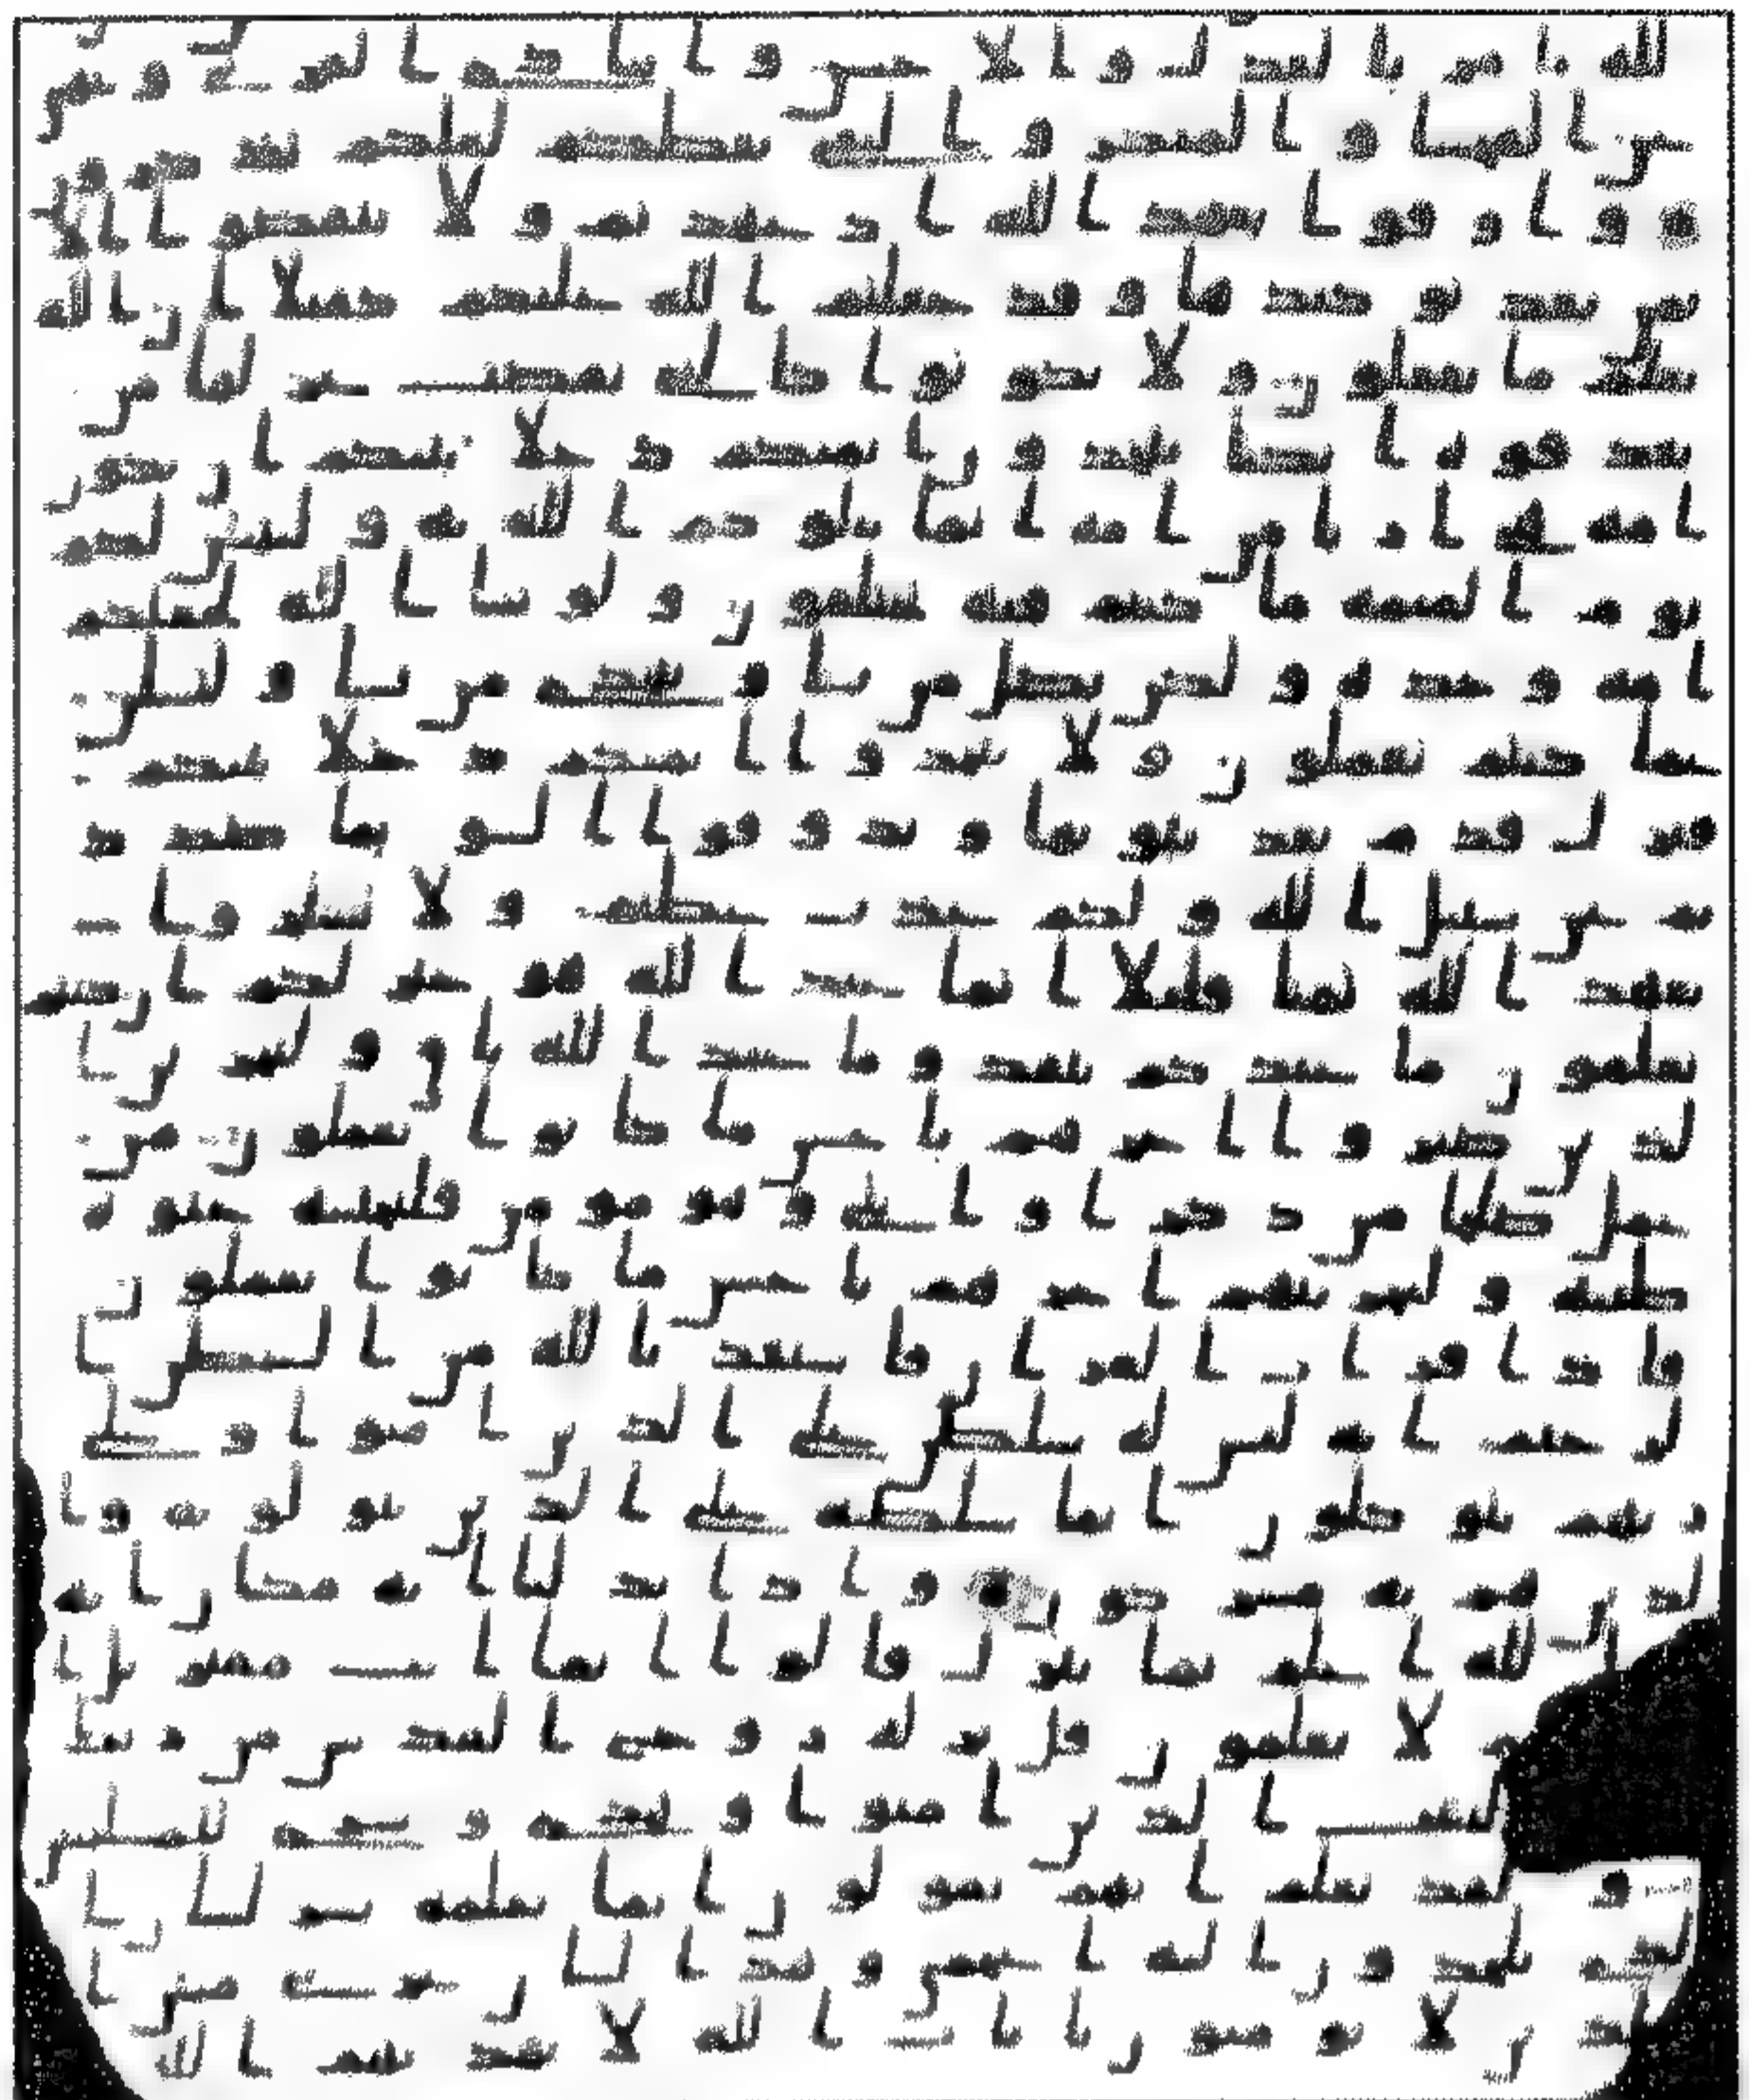 الله يامر بالعدل والاحسن وايتاى ذى القربى وينهى
عن الفحشا والمنكر والبغى يعظكم لعلكم تذكرو
ن واوفوا بعهد الله اذا عهدتم ولا تنقضوا الا
يمن بعد توكيدها وقد جعلتم الله عليكم كفيلا ان الله
يعلم ما تفعلون ولا تكونوا كالتى نقضت غزلها من
بعد قوة انكثا تتخذون ايمنكم دخلا بينكم ان تكون
امة هى اربى من امة انما يبلوكم الله به وليبينن لكم
يوم القيمة ما كنتم فيه تختلفون ولو شا الله لجعلكم
امة وحدة ولكن يضل من يشا ويهدى من يشا ولتسلن
عما كنتم تعملون ولا تتخذوا ايمنكم دخلا بينكم
فتزل قدم بعد ثبوتها وتذوقوا السو بما صددتم
عن سبيل الله ولكم عذاب عظيم ولا تشتروا ب
عهد الله ثمنا قليلا انما عند الله هو خير لكم ان كنتم
تعلمون ما عندكم ينفد وما عند الله باق ولنجزين ا
لذين صبروا اجرهم باحسن ما كانوا يعملون من
عمل صلحا من ذكر او انثى وهو مومن فلنحيينه حيوة
طيبة ولنجزينهم اجرهم باحسن ما كانوا يعملون
فاذا قرات القران فاستعذ بالله من الشيطن ا
لرجيم انه ليس له سلطن على الذين امنوا وعلى
ربهم يتوكلون انما سلطنه على الذين يتولونه وا
لذين هم به مشركون واذا بدلنا اية مكان اية
الله اعلم بما ينزل قالوا انما انت مفتر بل ا
هم لا يعلمون قل نزله روح القدس من ربك
ليثبت الذين امنوا وهدى وبشرى للمسلمين
ولقد نعلم انهم يقولون انما يعلمه بشر لسان ا
لذى يلحدون اليه اعجمى وهذا لسان عربى مبين ا
لذين لا يومنون بايت الله لا يهديهم الله